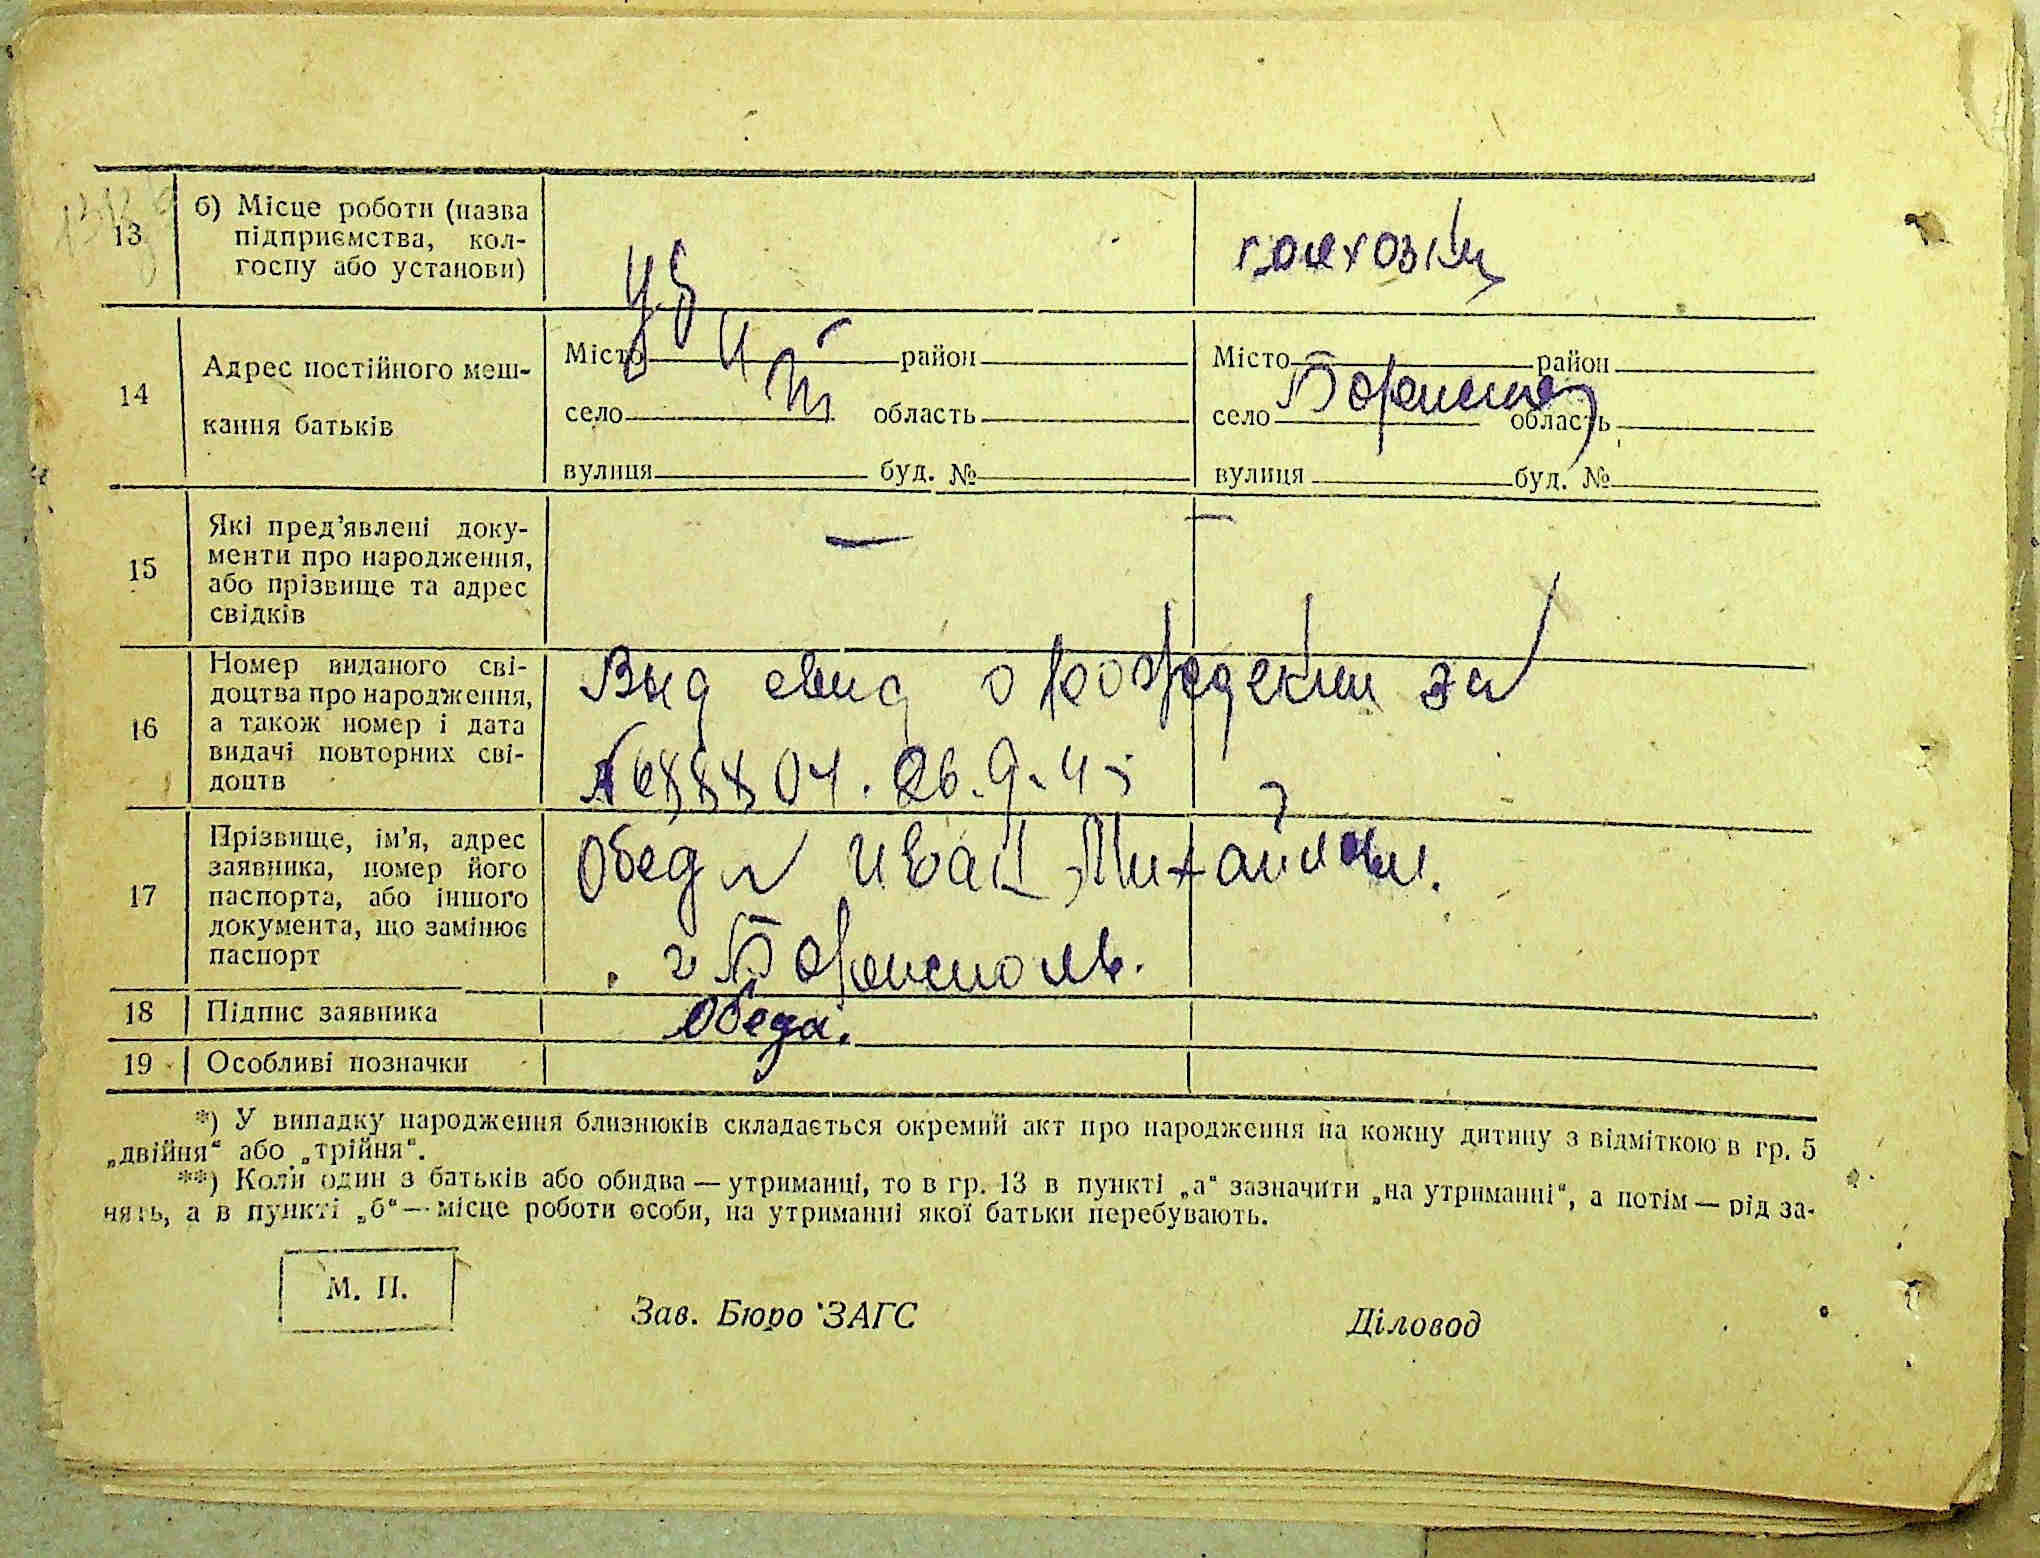 13
б) Місце роботи (назва
підприємства, кол-
госпу або установи)
14
Адрес постійного меш-
кання батьків
Місто район
село область
вулиця буд. №
Місто район
село область
вулиця буд. №
15
Які пред’явлені доку-
менти про народження,
або прізвище та адрес
свідків
—
—
16
Номер виданого сві-
доцтва про народження,
а також номер і дата
видачі повторних сві-
доцтв
Выд свид о рождении за
04. 26. 9. 45
17
Прізвище, ім’я, адрес
заявника, номер його
паспорта, або іншого
документа, що замінює
паспорт
Обеда Иван
г Борисполь.
18
Підпис заявника
Обеда.
19
Особливі позначки
*) У випадку народження близнюків складається окремий акт про народження на кожну дитину з відміткою в гр. 5
„двійня“ або „трійня“.
**) Коли один з батьків або обидва — утриманці, то в гр. 13 в пункті „а“ зазначити „на утриманні“, а потім — рід за-
нять, а в пункті „б“ — місце роботи особи, на утриманні якої батьки перебувають.
М. П.
Зав. Бюро ЗАГС
Діловод